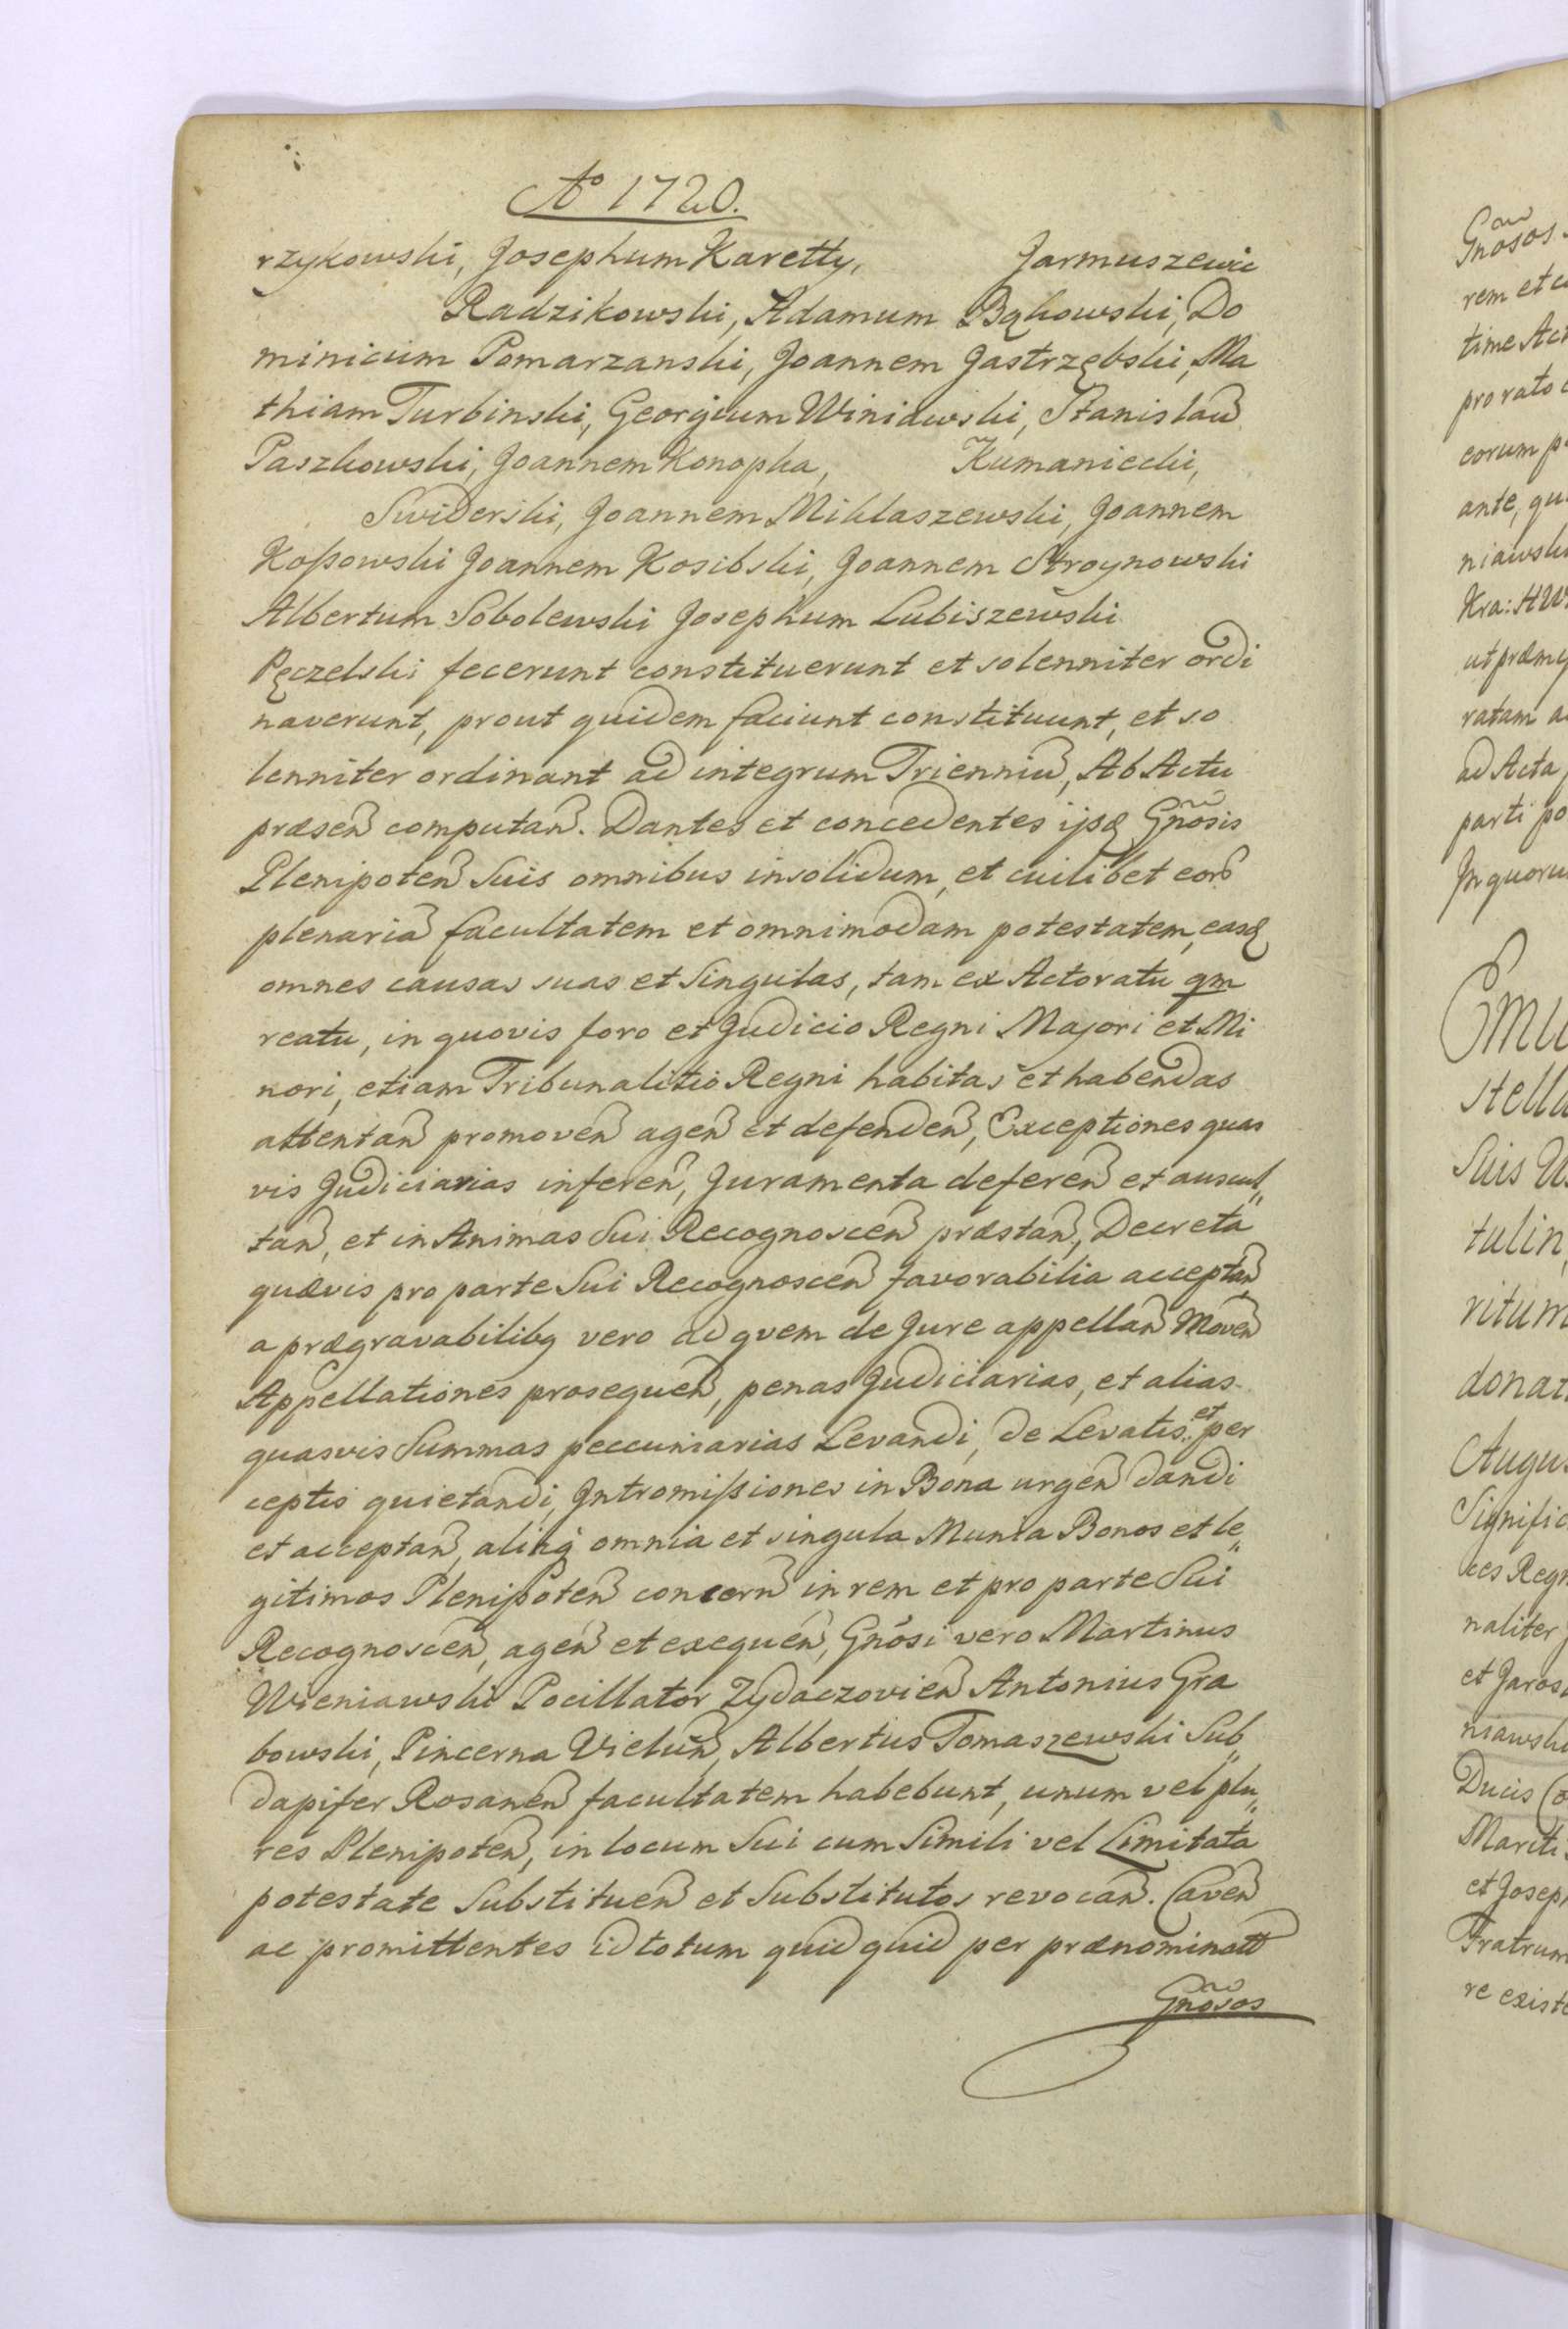 Ao 1720.
rzykowski, Josephum Karetty, Jarmuszewic
Radzikowski, Adamum Bąkowski, Do
minicum Pomarzanski, Joannem Jastrzębski, Ma
thiam Turbinski, Georgium Winiawski, Stanislau
Paszkowski, Joannem Konopka, Kumaniecki,
Swiderski, Joannem Miklaszewski, Joannem
Koſsowski Joannem Kosibski, Joannem Stroynowski
Albertum Sobolewski Josephum Lubiszewski
Pęczelski fecerunt constituerunt et solenniter ordi
naverunt, prout quidem faciunt constituunt, et so
lenniter ordinant ad integrum Trienniu, Ab Actu
præsen computan. Dantes et concedentes ijsq Gnosis
Plenipoten Suis omnibus insolidum, et cuilibet eor
plenaria facultatem et omnimodam potestatem, easq
omnes causas suas et Singulas, tam ex Actoratu qm
reatu, in quovis foro et Judicio Regni Majori et Mi
nori, etiam Tribunalitio Regni habitas et habendas
attentan promoven agen et defenden, Exceptiones quas
vis Judiciarias inferen, Juramenta deferen et auscul„
tan, et in Animas Sui Recognoscen præstan, Decreta
quævis pro parte Sui Recognoscen favorabilia acceptan
a prægravabilibq vero ad quem de Jure appellan Moven
Appellationes prosequen, penas Judiciarias, et alias
quasvis Summas peccuniarias Levandi, de Levatis et per
ceptis quietandi, Intromiſsiones in Bona urgen dandi
et acceptan, aliaq omnia et singula Munia Bonos et le„
gitimos Plenipoten concern in rem et pro parte Sui
Recognoscen, agen et exequen, Gnosi vero Martinus
Wieniawski Pocillator Zydaczovien Antonius Gra
bowski, Pincerna Vielun, Albertus Tomaszewski Sub„
dapifer Rosanen facultatem habebunt, unum vel plu„
res Plenipoten, in locum Sui cum Simili vel Limitata
potestate Substituen et Substitutos revocan. Caven
ac promittentes id totum quid quid per prænominatt
Gnosos
Gnosos
rem et
time Ac
pro rato
eorum p
ante, qu
niawsk
Kra:
ut præm
ratam a
ad Acta
parti po
In quoru
stella
Suis
tulin
ritum
donat
Augus
Signific
ces Reg
naliter
et Jaros
niawsk
Ducis
Mariti
et Josep
Fratrum
re exist